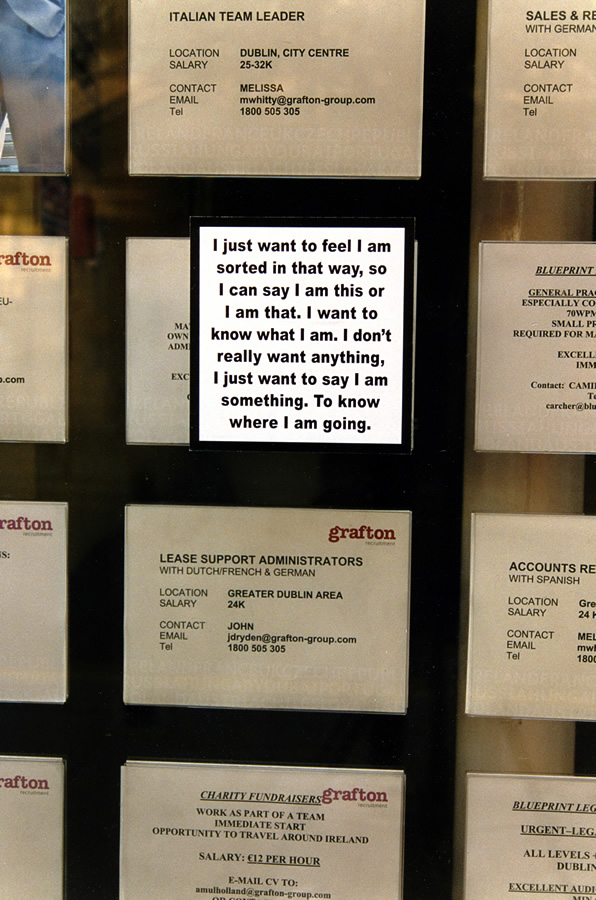 ITALIAN TEAM LEADER
LOCATION DUBLIN, CITY CENTRE
SALARY 25-32K
CONTACT MELISSA
EMAIL mwhitty@grafton-group.com
Tel 1800 505 305
SALES & RE
WITH GERMAN
LOCATION
SALARY
CONTACT
EMAIL
Tel
rafton
recruitment
EU-
.com
MA
OWN
ADM
EXC
I just want to feel I am
sorted in that way, so
I can say I am this or
I am that. I want to
know what I am. I don't
really want anything,
I just want to say I am
something. To know
where I am going.
BLUEPRINT
GENERAL PRAC
ESPECIALLY CO
70WPM
SMALL PR
REQUIRED FOR MA
EXCELL
IMM
Contact: CAMI
Te
carcher@blu
rafton
recruitment
S:
grafton
recruitment
LEASE SUPPORT ADMINISTRATORS
WITH DUTCH/FRENCH & GERMAN
LOCATION GREATER DUBLIN AREA
SALARY 24K
CONTACT JOHN
EMAIL jdryden@grafton-group.com
Tel 1800 505 305
ACCOUNTS RE
WITH SPANISH
LOCATION Gre
SALARY 24 K
CONTACT MEL
EMAIL mwh
Tel 1800
rafton
recruitment
CHARITY FUNDRAISERS grafton
recruitment
WORK AS PART OF A TEAM
IMMEDIATE START
OPPORTUNITY TO TRAVEL AROUND IRELAND
SALARY: €12 PER HOUR
E-MAIL CV TO:
amulholland@grafton-group.com
BLUEPRINT LEG
URGENT–LEGA
ALL LEVELS
DUBLIN
EXCELLENT AUDI